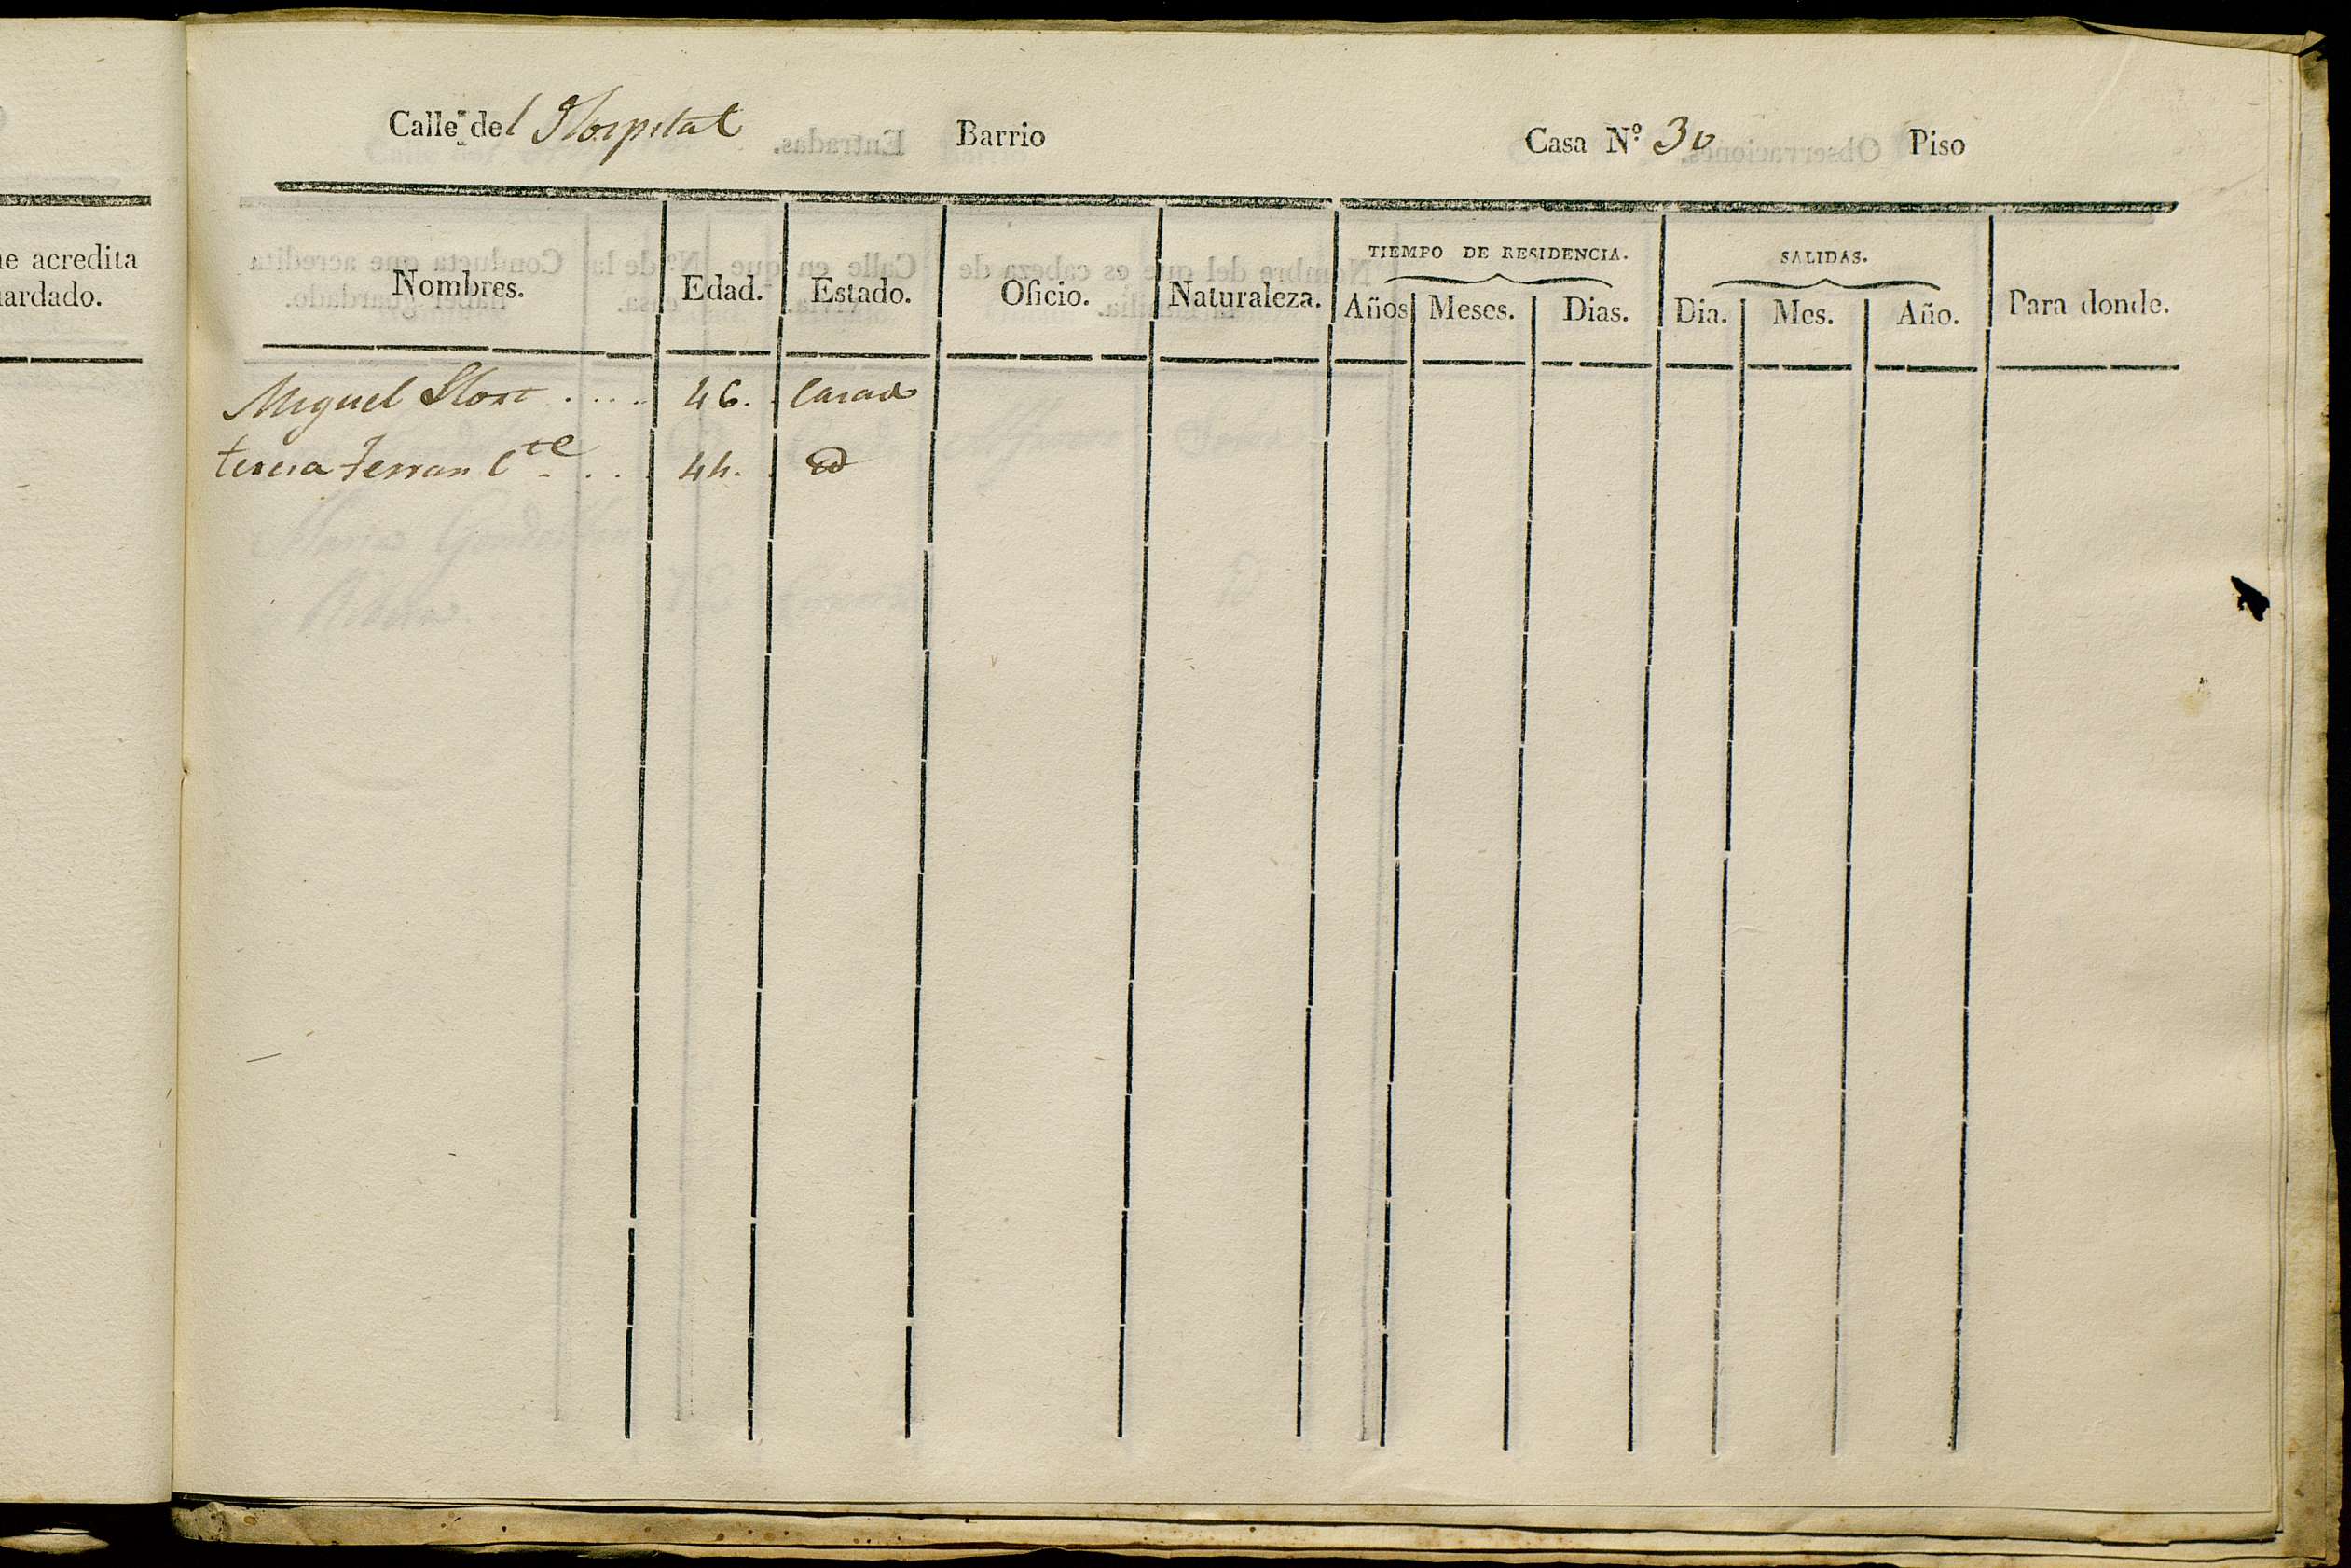 ne acredita
uardado.
Calle del Hospital Barrio Casa N.º 30 Piso
Nombres. Edad. Estado. Oficio. Naturaleza. TIEMPO DE RESIDENCIA. Años Meses. Dias. SALIDAS. Dia. Mes. Año. Para donde.
Miguel Llort .... 46. Casado
teresa Ferran Cte ... 44. Id